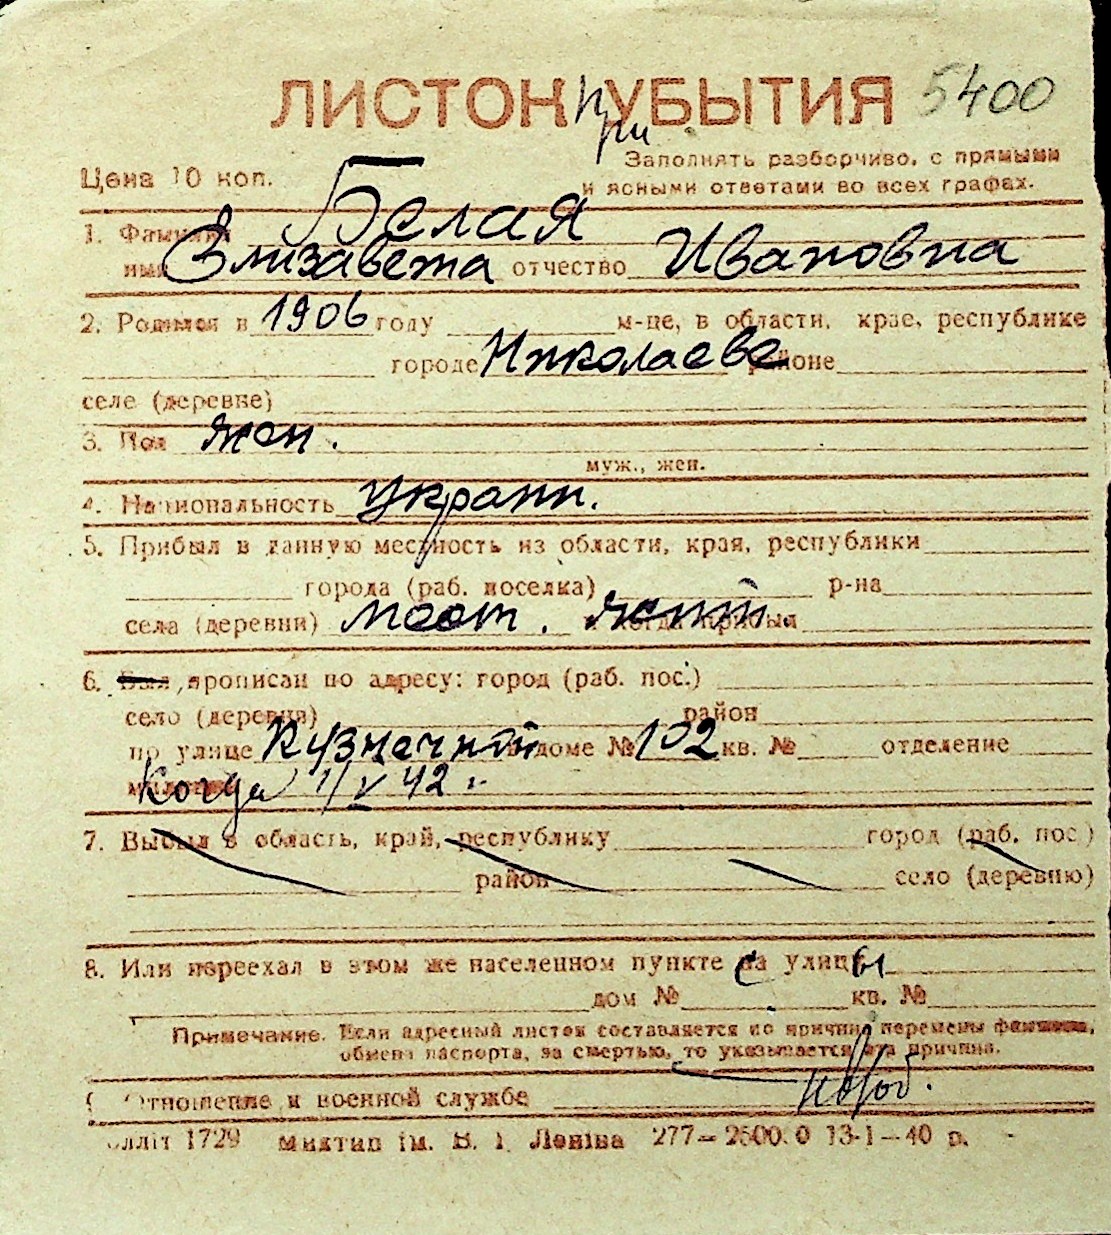 ЛИСТОК при УБЫТИЯ 5400
Цена 10 коп. Заполнять разборчиво, с прямыми
и ясными ответами во всех графах.
1. Фамилия Белая
имя Элизавета отчество Ивановна
2. Родился в 1906 году м-це, в области, крае, республике
городе Николаеве районе
селе (деревне)
3. Пол жен.
муж., жен.
4. Национальность украин.
5. Прибыл в данную местность из области, края, республики
города (раб. поселка) р-на
села (деревни) мест. жит. и когда прибыл
6. Был прописан по адресу: город (раб. пос.)
село (деревня) район
по улице Кузнечной дом № 102 кв. № отделение
милиции Когда 1/V 42 г.
7. Выбыл в область, край, республику город (раб. пос.)
район село (деревню)
8. Или переехал в этом же населенном пункте с улицы
дом № кв. №
Примечание. Если адресный листок составляется по причине перемены фамилии,
обмена паспорта, за смертью, то указывается эта причина.
Отношение к военной службе
1729 Миктип ім. В. І. Леніна 277— 2500.0 13-1—40 р.